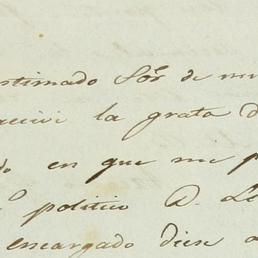 estimado Sōr. de mi
recivi la grata d
do en que me p
o politico D. Le
encargado diese a